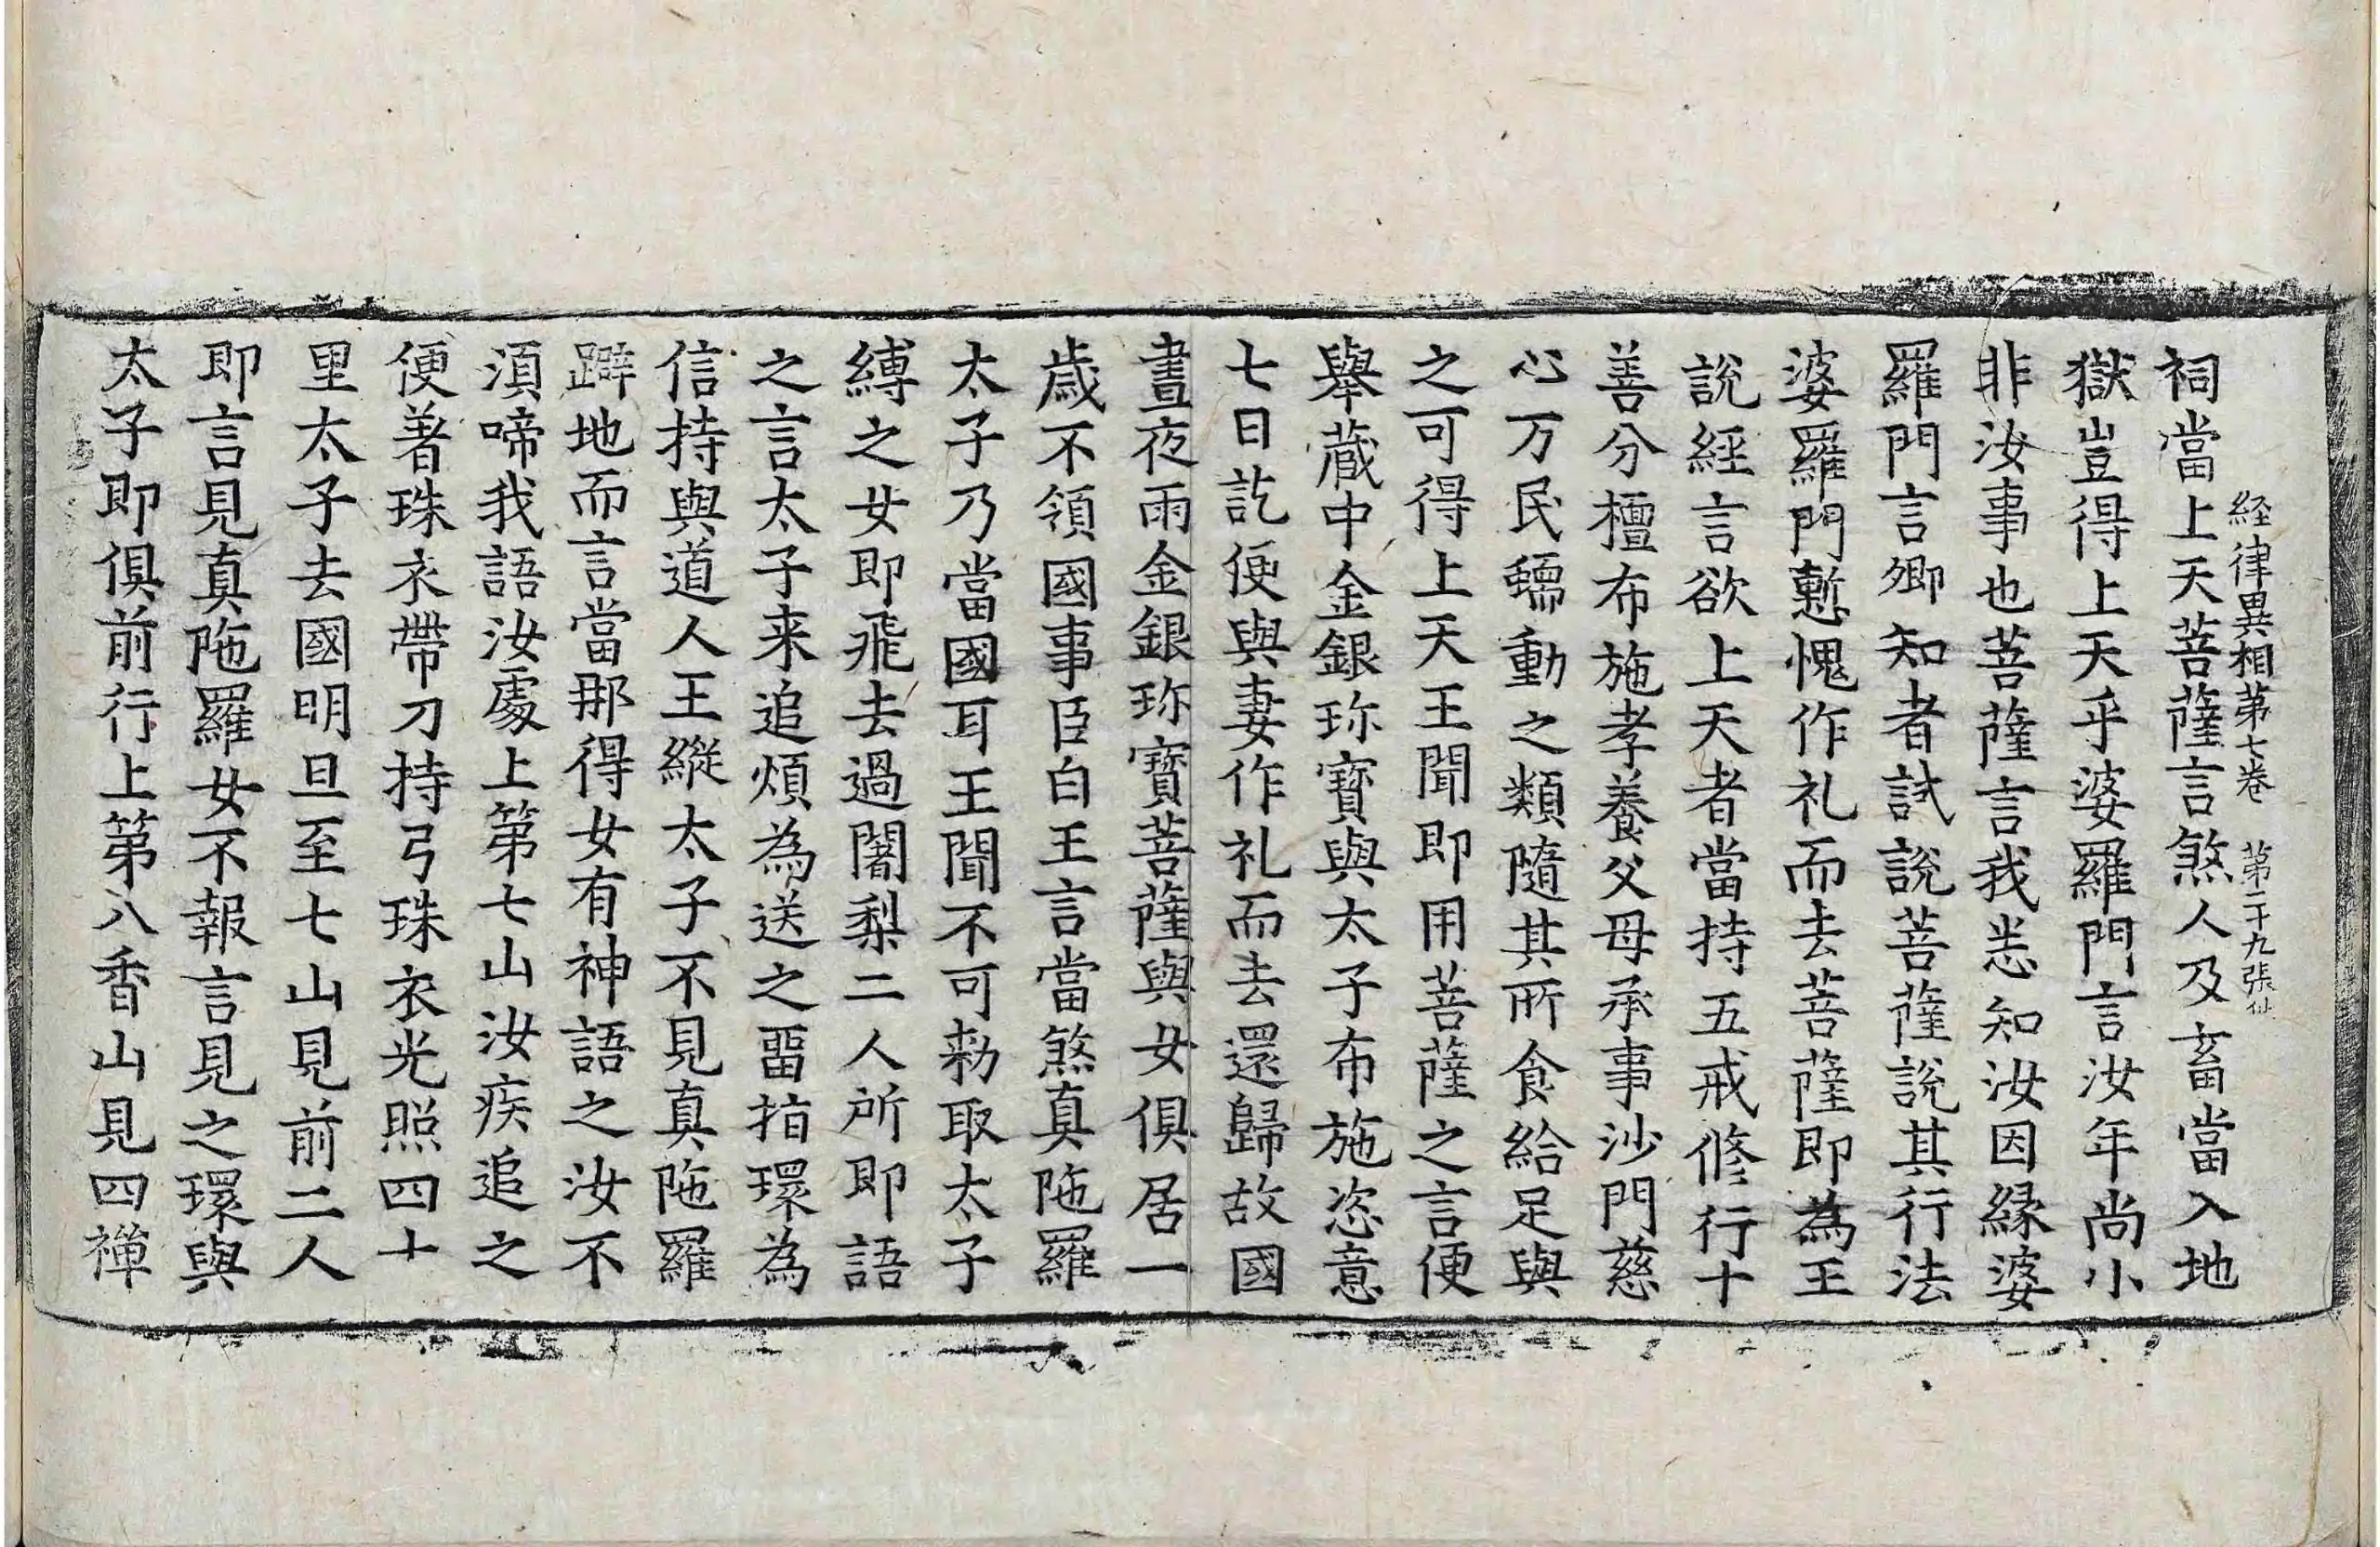 経律異相第七卷 第二十九張 仙
祠當上天菩薩言煞人及畜當入地
獄豈得上天乎婆羅門言汝年尚小
非汝事也菩薩言我悉知汝因縁婆
羅門言卿知者試說菩薩說其行法
婆羅門慙愧作礼而去菩薩即為王
說經言欲上天者當持五戒修行十
善分檀布施孝養父母承事沙門慈
心万民蠕動之類隨其所食給足與
之可得上天王聞即用菩薩之言便
舉蔵中金銀珎寳與太子布施恣意
七日訖便與妻作礼而去還歸故國
晝夜雨金銀珎寳菩薩與女俱居一
歳不領國事臣白王言當煞真陁羅
太子乃當國耳王聞不可勑取太子
縛之女即飛去過闍梨二人所即語
之言太子来追煩為送之畱指環為
信持與道人王縱太子不見真陁羅
躃地而言當那得女有神語之汝不
湏啼我語汝處上第七山汝疾追之
便著珠衣帶刀持弓珠衣光照四十
里太子去國明旦至七山見前二人
即言見真陁羅女不報言見之環與
太子即俱前行上第八香山見四禪